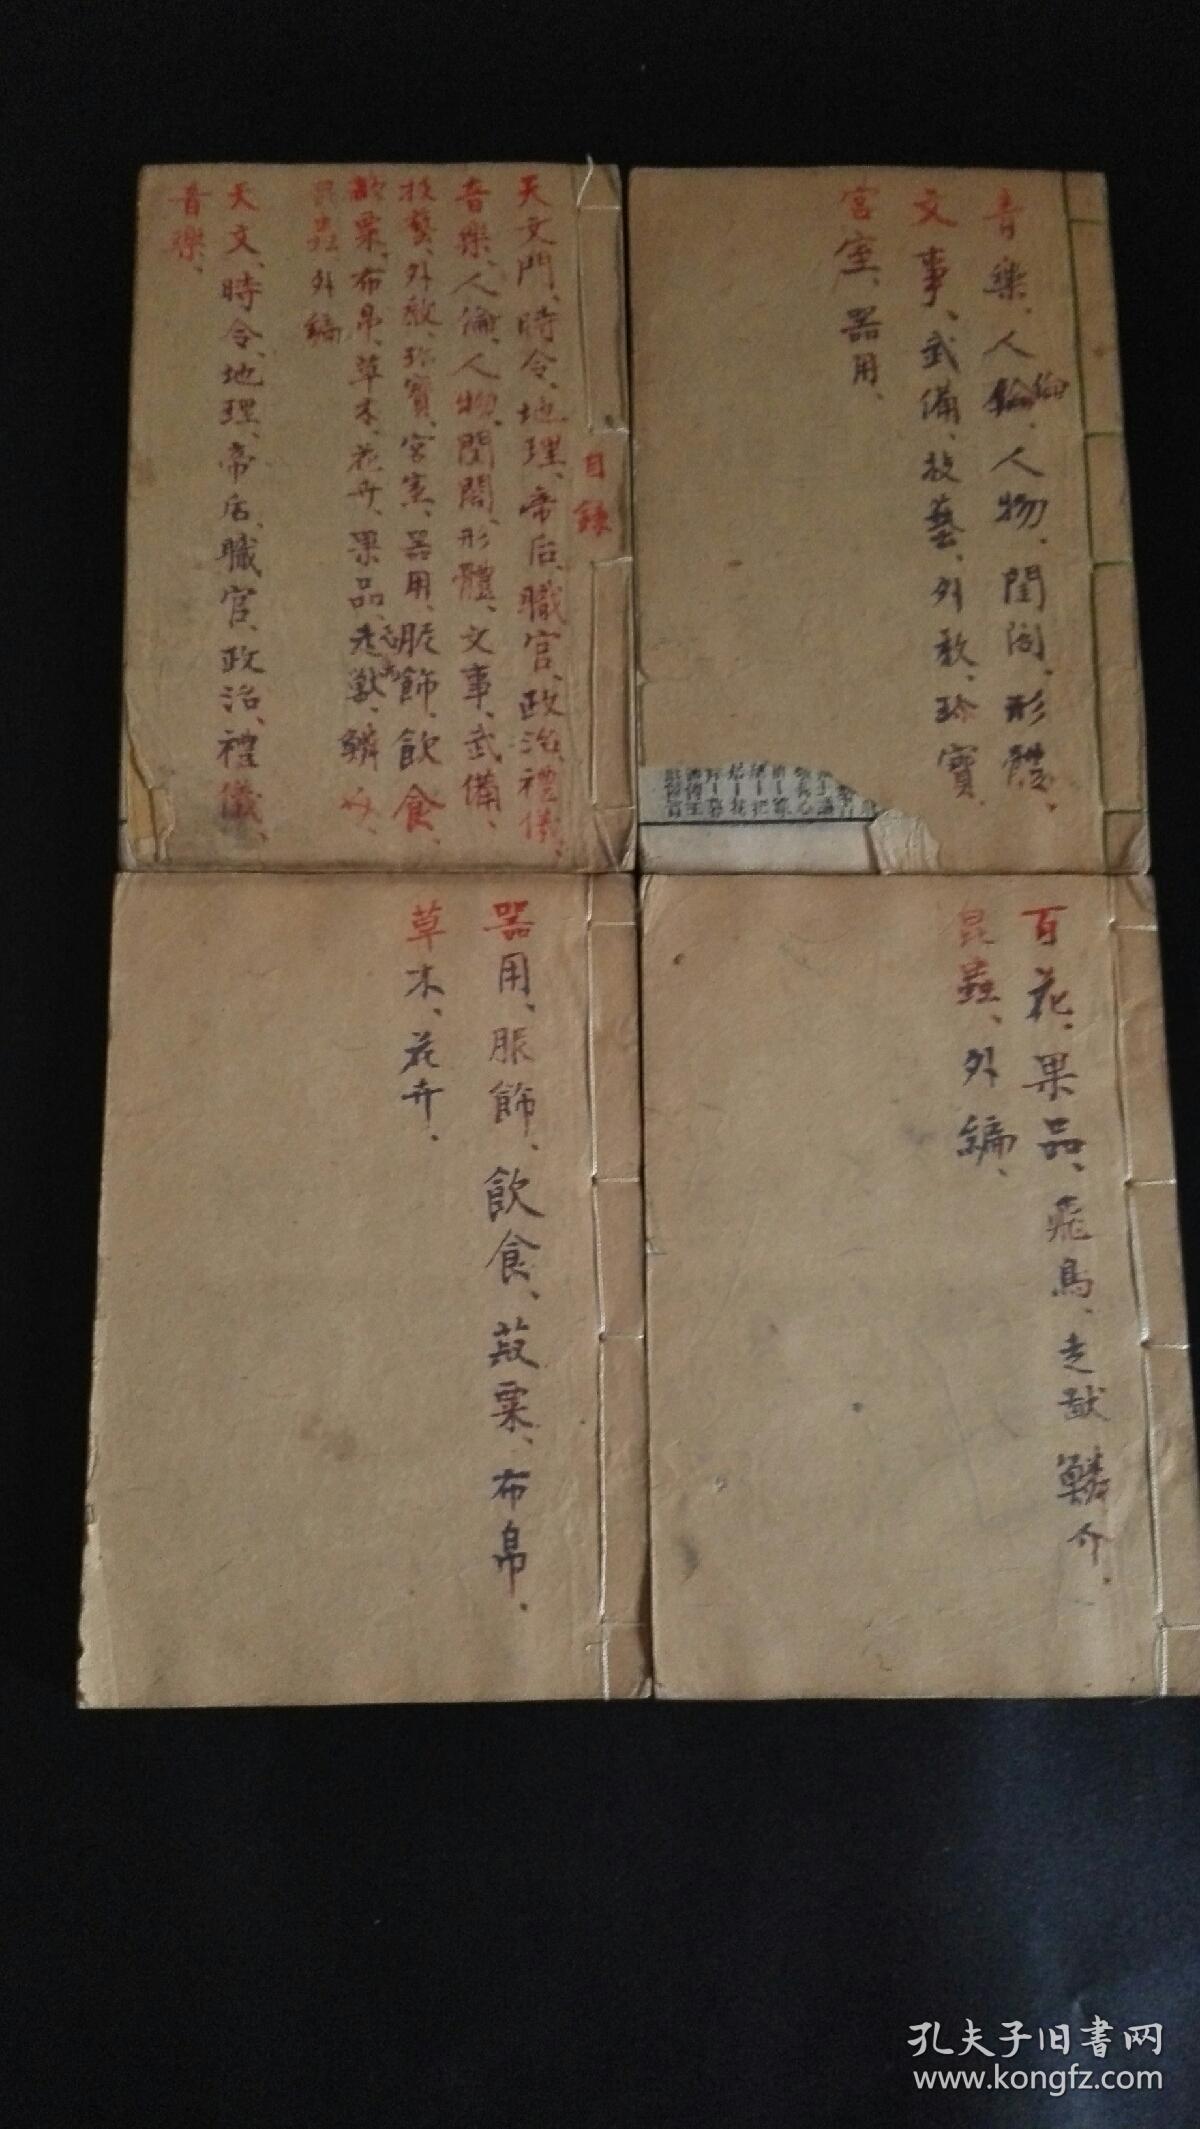 目錄
天文門、時令、地理、帝后、職官、政治、禮儀、
音樂、人倫、人物、閨閣、形體、文事、武備、
技藝、外教、珍寶、宮室、器用、服飾、飲食、
菽粟、布帛、草木、花卉、果品、飛鳥、走獸、鱗介、
昆蟲、外編
天文、時令、地理、帝后、職官、政治、禮儀、
音樂、
音樂、人倫、人物、閨閣、形體、
文事、武備、技藝、外教、珍寶、
宮室、器用、
器用、服飾、飲食、菽粟、布帛、
草木、花卉、
百花、果品、飛鳥、走獸、鱗介、
昆蟲、外編、
孔夫子旧书网
www.kongfz.com